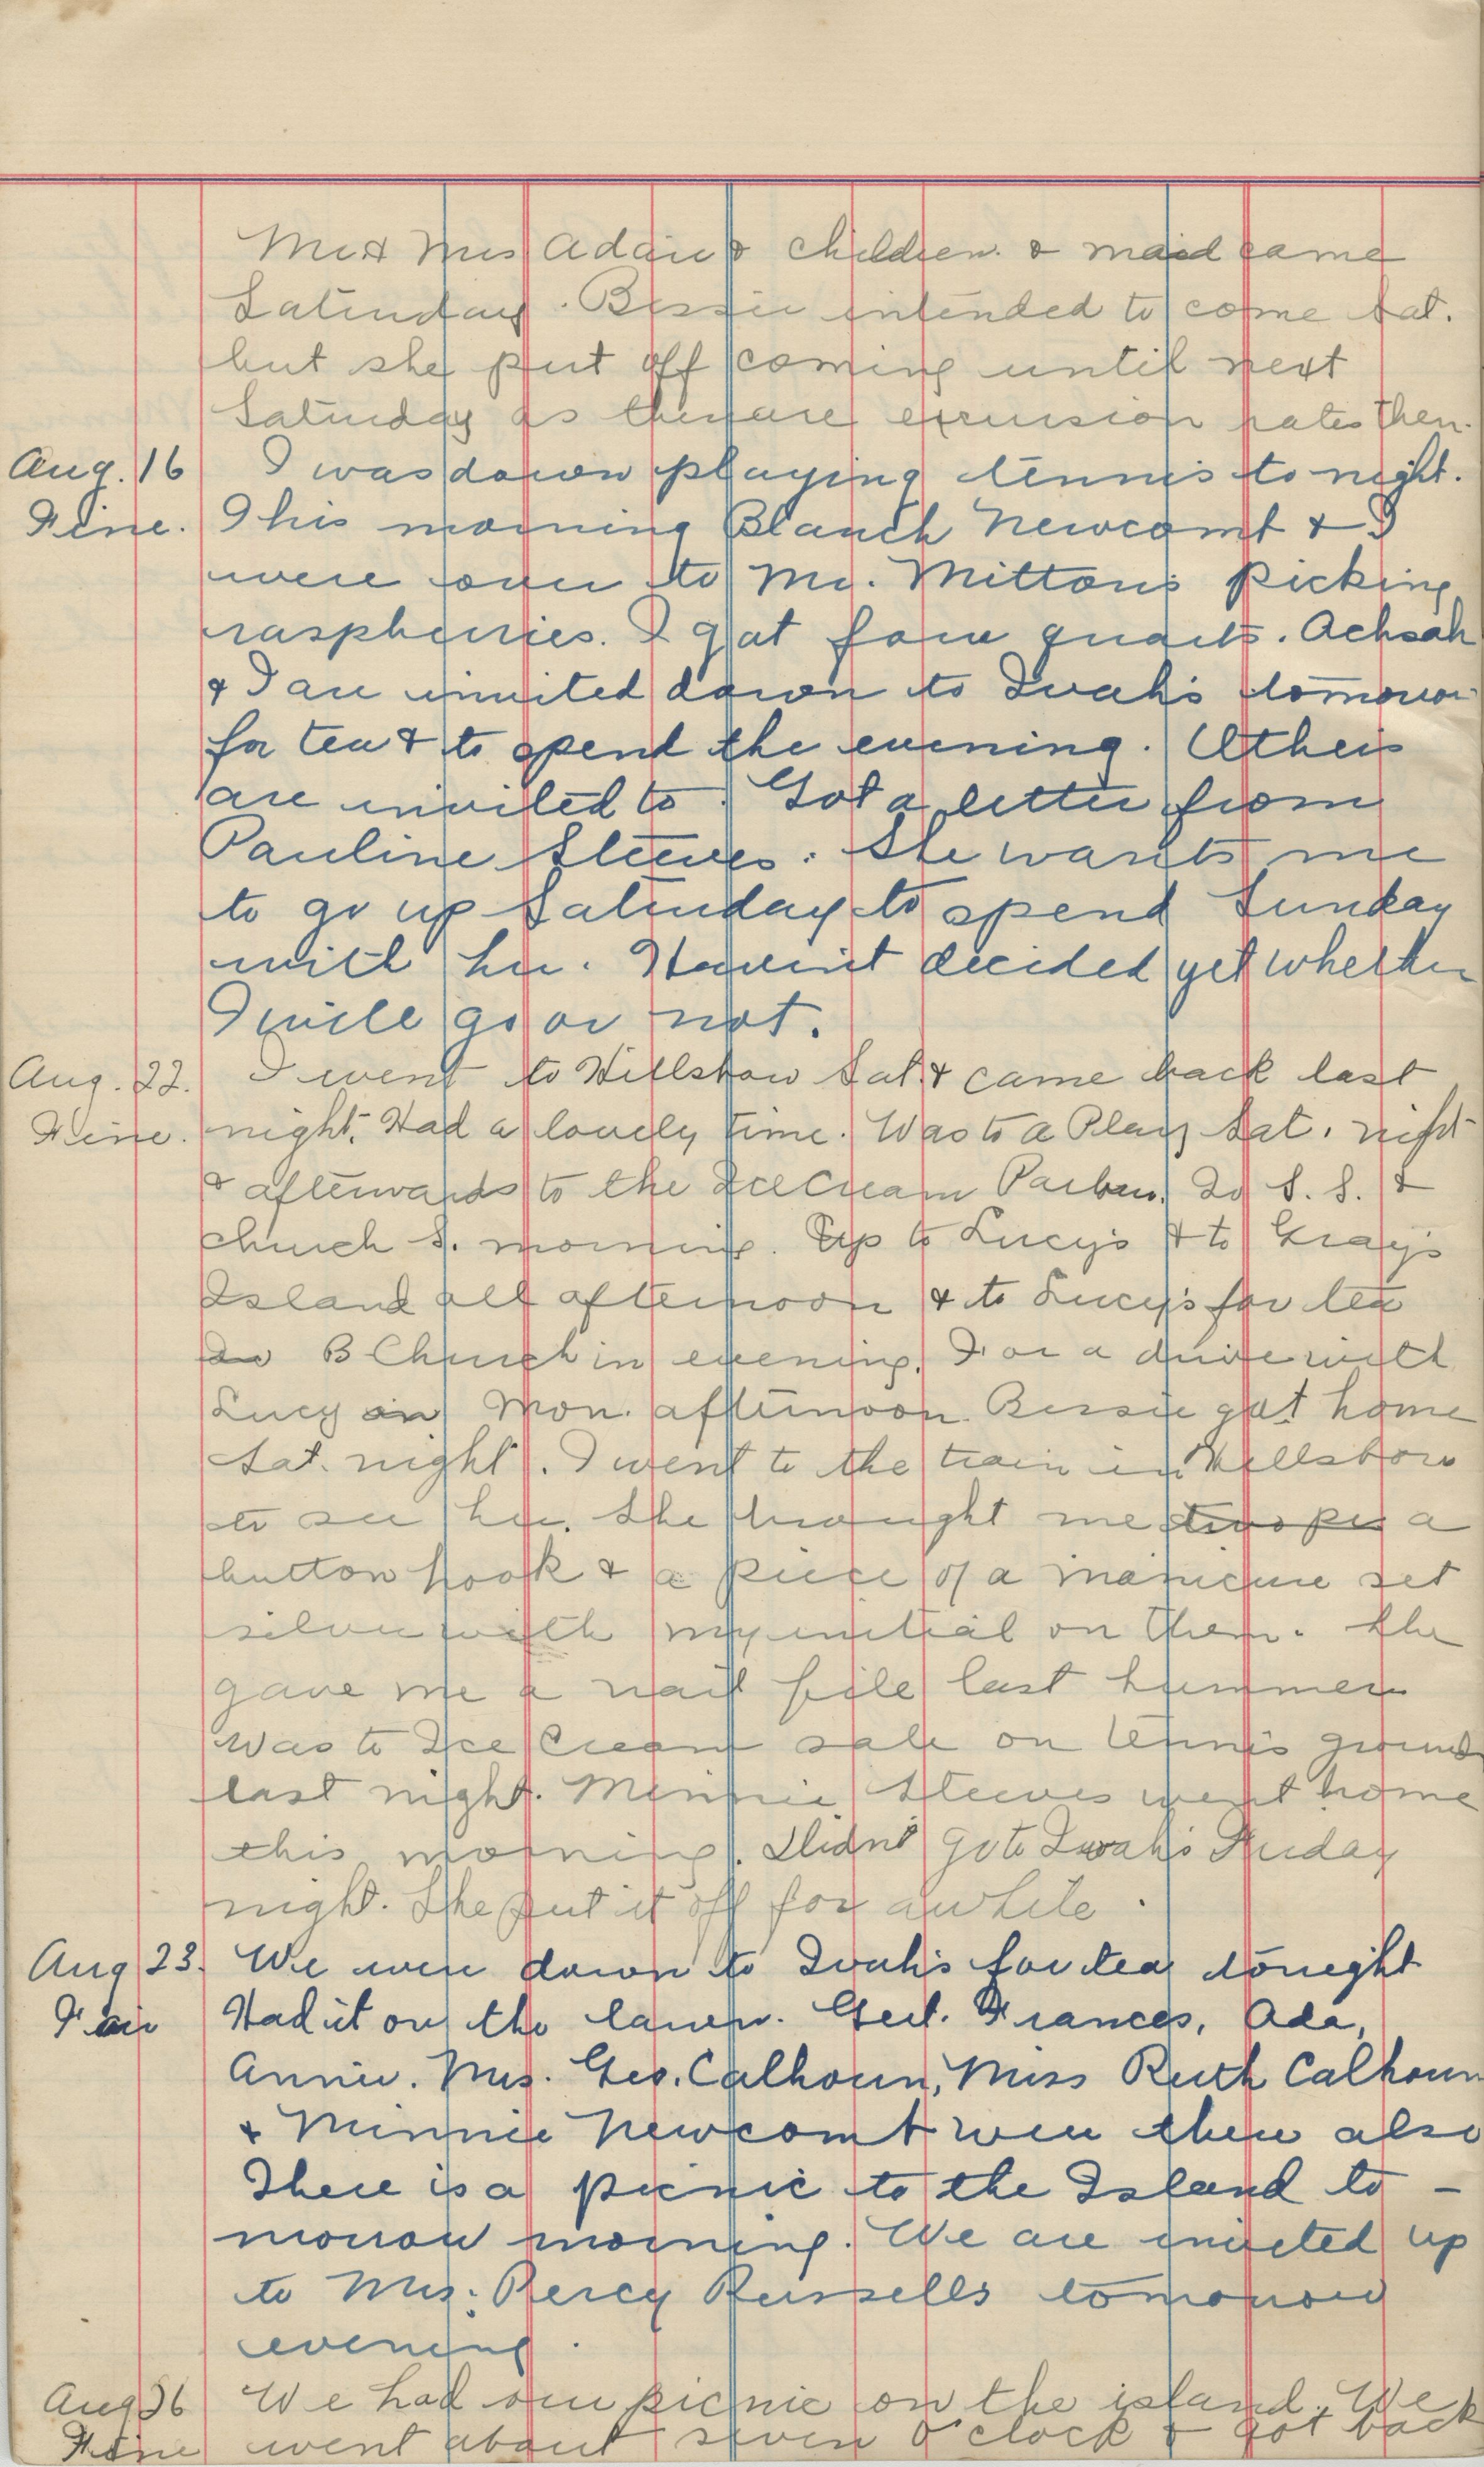 Mr & Mrs Adair & children & maid came
Saturday. Bessie intended to come Sat.
but she put off coming until next
Saturday as there are excursion rates then.
Aug. 16 I was down playing tennis to night.
Fine. This morning Blanch Newcomb & I
were over to Mr. Mitton's picking
raspberries. I got four quarts. Achsah
& I are invited down to Ivah's tomorrow
for tea & to spend the evening. Others
are invited to. Got a letter from
Pauline Steeves. She wants me
to go up Saturday to spend Sunday
with her. Haven't decided yet whether
I will go or not.
Aug. 22. I went to Hillsboro Sat. & came back last
Fine. night. Had a lovely time. Was to a Play Sat. night
& afterwards to the Ice Cream Parlour. To S. S. &
church S. morning. Up to Lucy's & to Gray's
Island all afternoon & to Lucy's for tea
To B Church in evening. For a drive with
Lucy on Mon. afternoon. Bessie got home
Sat. night. I went to the train in Hillsboro
to see her. She brought me two pes a
button hook & a piece of a manicure set
silver with my initial on them. She
gave me a nail file last summer
Was to Ice Cream sale on tennis grounds
last night. Minnie Steeves went home
this morning. Didn't go to Ivah's Friday
night. She put it off for awhile.
Aug 23. We were down to Ivah's for tea tonight
Fair Had it on the lawn. Gert. Frances, Ada,
Annie. Mrs. Geo. Calhoun, Miss Ruth Calhoun
& Minnie Newcomb were there also
There is a picnic to the Island to -
morrow morning. We are invited up
to Mrs. Percy Russells tomorrow
evening.
Aug 26 We had our picnic on the island. We
Fine went about seven o'clock & got back